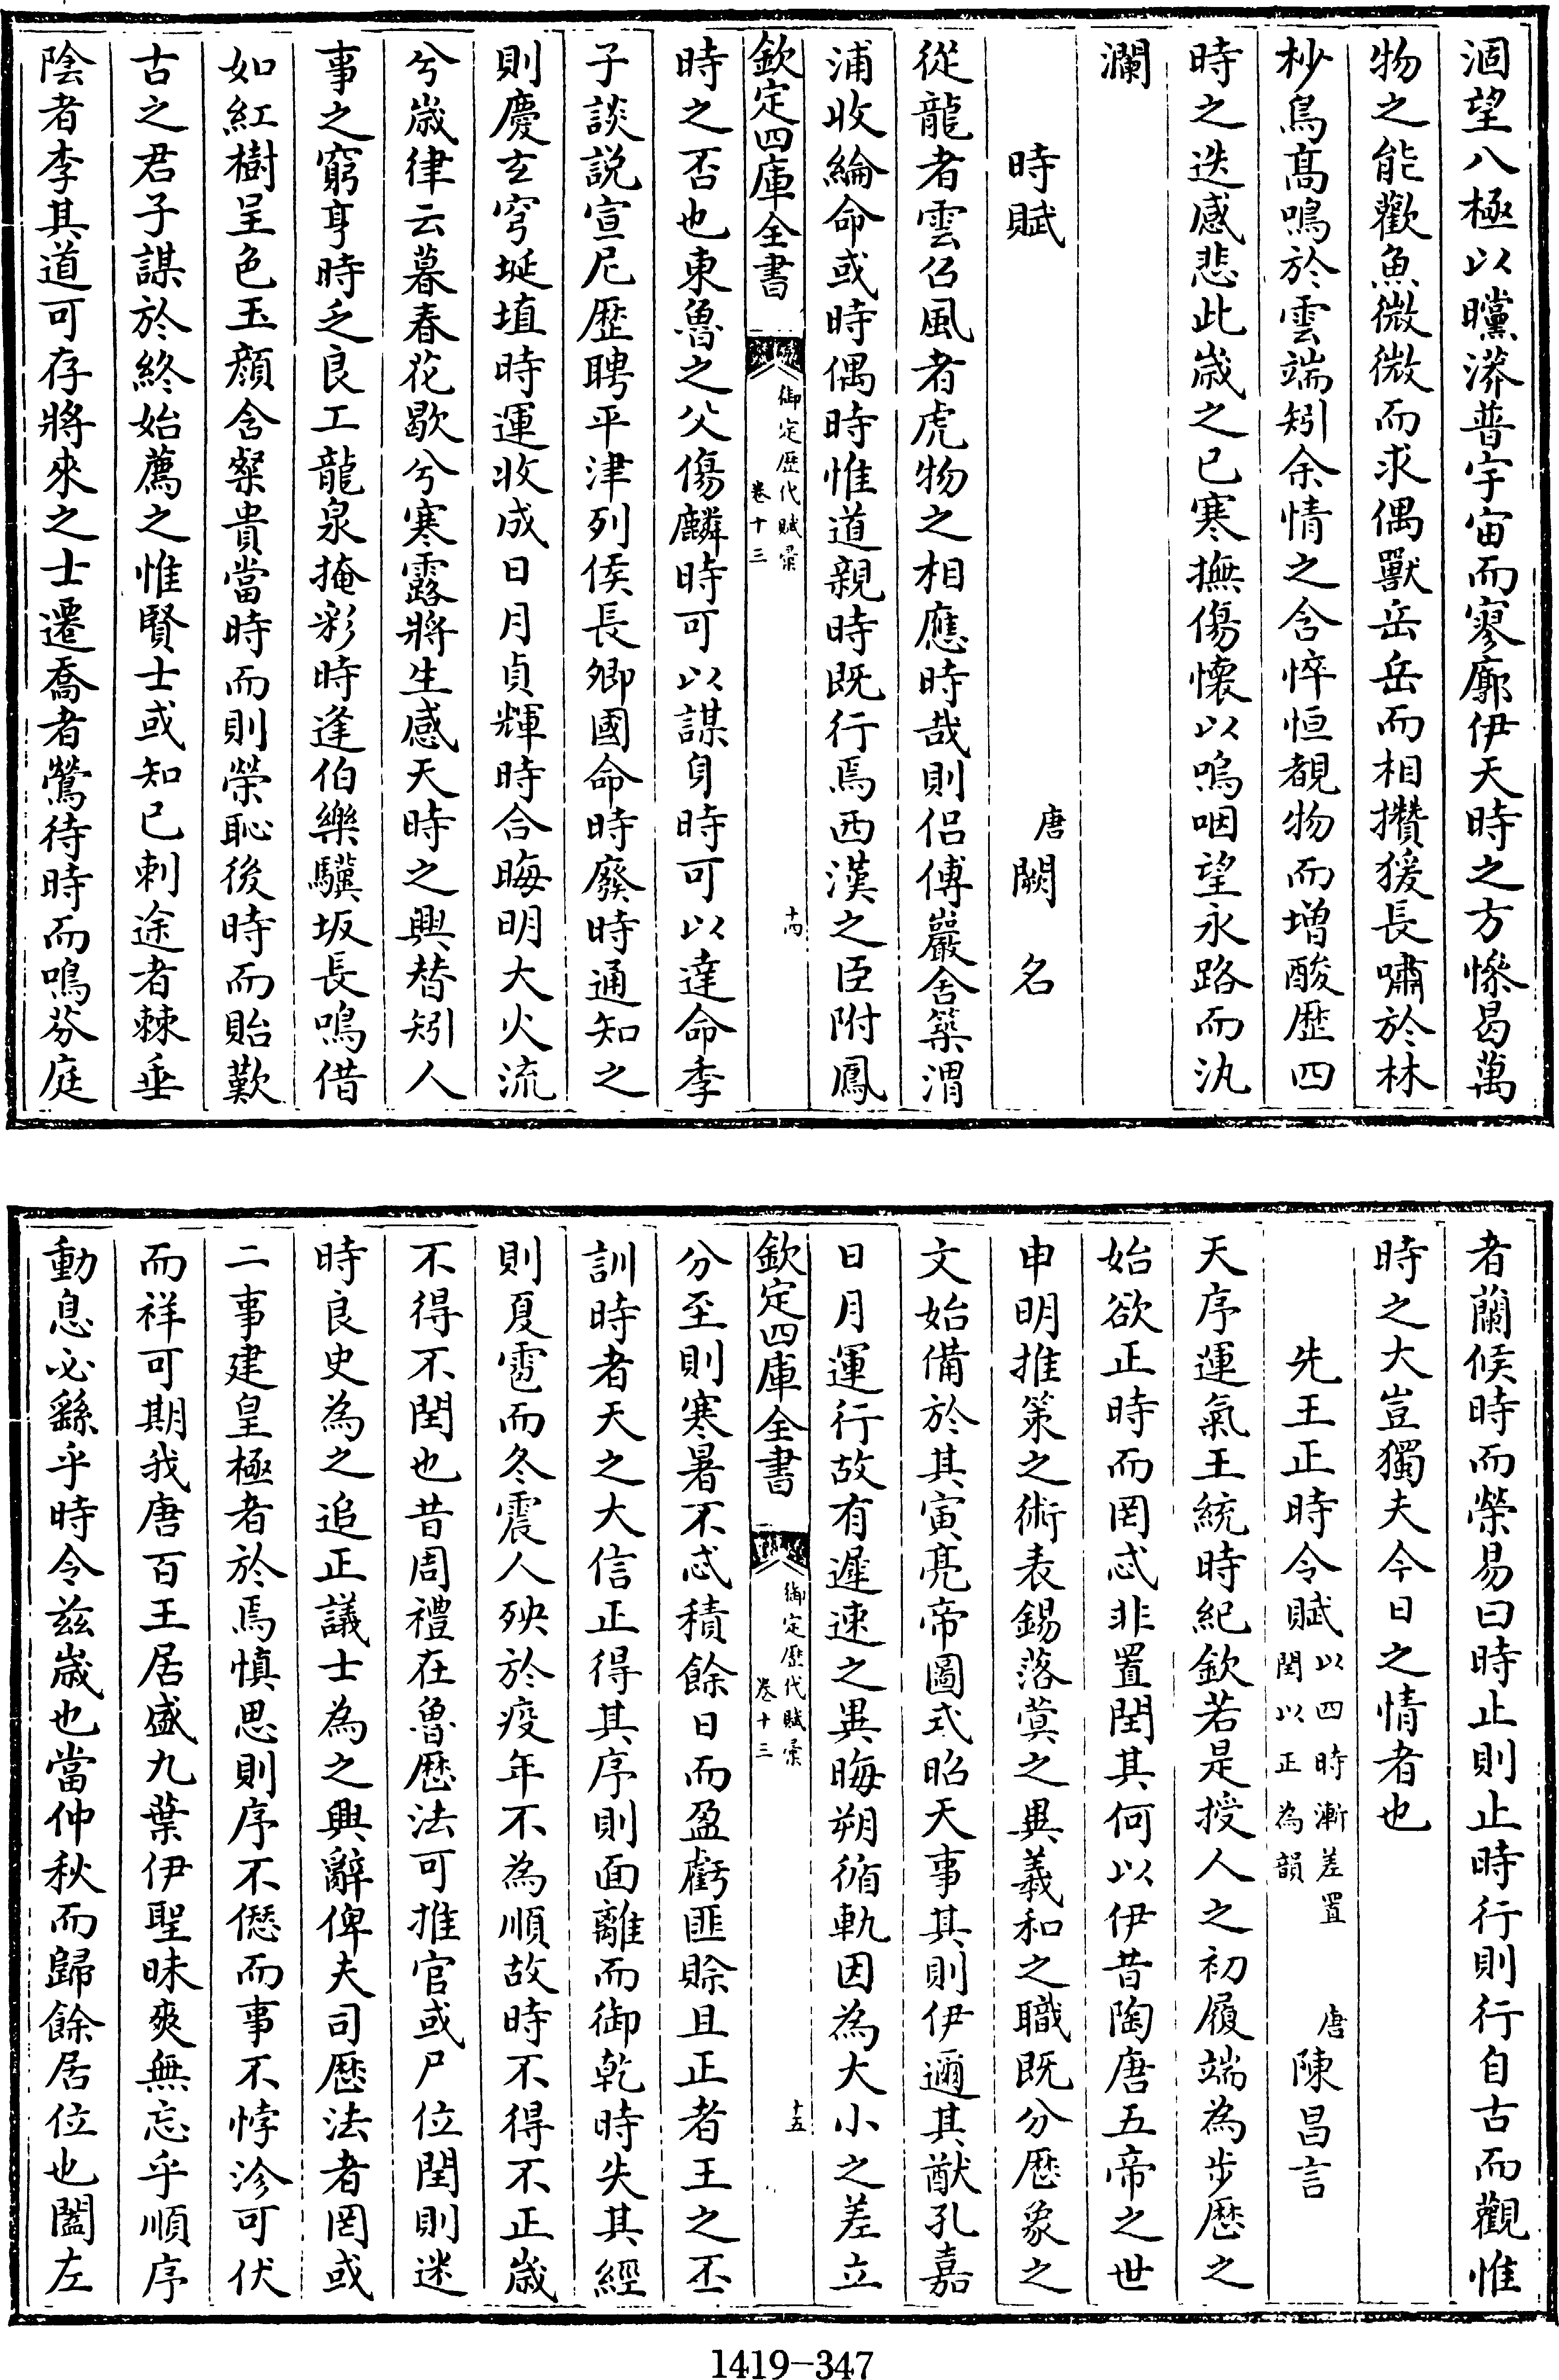 涸望八極以曭漭普宇宙而寥廓伊天時之方慘曷萬
物之能歡魚微微而求偶獸岳岳而相攢猨長嘯於林
杪鳥髙鳴於雲端矧余情之含悴恒覩物而增酸歴四
時之迭感悲此嵗之已寒撫傷懐以嗚咽望永路而汍
瀾
時賦
唐闕名
從龍者雲召風者虎物之相應時哉則侣傅巖舍築渭
浦收綸命或時偶時惟道親時既行焉西漢之臣附鳳
欽定四庫全書
御定歴代賦彚
卷十三
十四
時之否也東魯之父傷麟時可以謀身時可以達命李
子談説宣尼歴聘平津列侯長卿國命時廢時通知之
則慶玄穹埏埴時運收成日月貞輝時合晦明大火流
兮嵗律云暮春花歇兮寒露將生感天時之興替矧人
事之窮亨時乏良工龍泉掩彩時逢伯樂驥坂長鳴借
如紅樹呈色玉顔含粲貴當時而則榮恥後時而貽歎
古之君子謀於終始薦之惟賢士或知已刺途者棘垂
陰者李其道可存將來之士遷喬者鶯待時而鳴芬庭
者蘭候時而榮易曰時止則止時行則行自古而觀惟
時之大豈獨夫今日之情者也
先王正時令賦
以四時漸差置
閏以正為韻
唐陳昌言
天序運氣王統時紀欽若是授人之初履端為步歴之
始欲正時而罔忒非置閏其何以伊昔陶唐五帝之世
申明推策之術表錫落蓂之異羲和之職既分歴象之
文始備於其寅亮帝圖式昭天事其則伊邇其猷孔嘉
日月運行故有遲速之異晦朔循軌因為大小之差立
欽定四庫全書
御定歴代賦彚
卷十三
十五
分至則寒暑不忒積餘日而盈虧匪賒且正者王之丕
訓時者天之大信正得其序則面離而御乾時失其經
則夏雹而冬震人殃於疫年不為順故時不得不正嵗
不得不閏也昔周禮在魯歴法可推官或尸位閏則迷
時良史為之追正議士為之興辭俾夫司歴法者罔或
二事建皇極者於焉慎思則序不僽而事不悖沴可伏
而祥可期我唐百王居盛九葉伊聖昧爽無忘乎順序
動息必繇乎時令兹嵗也當仲秋而歸餘居位也闔左
1419-347